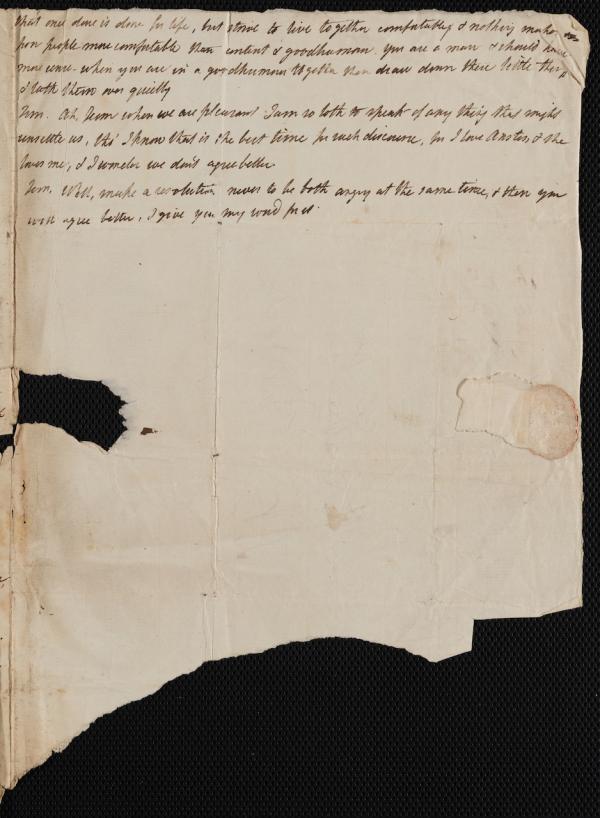 that one done is done for life, but strive to live together comfortably, & nothing makes
poor people more comfortable than content & goodhumour. You are a man & should have
more sense. when you are in a goodhumour together then draw down these little things
& talk them over quietly
Tim. Ah, Jem when we are pleasant I am so loth to speak of any thing that might
unsettle us, tho' I know that is the best time for such discourse, for I love & she
loves me, & I wonder we don't agree better
Jem. Well, make a resolution never to be both angry at the same time, & then you
will agree better, I give you my word for it.